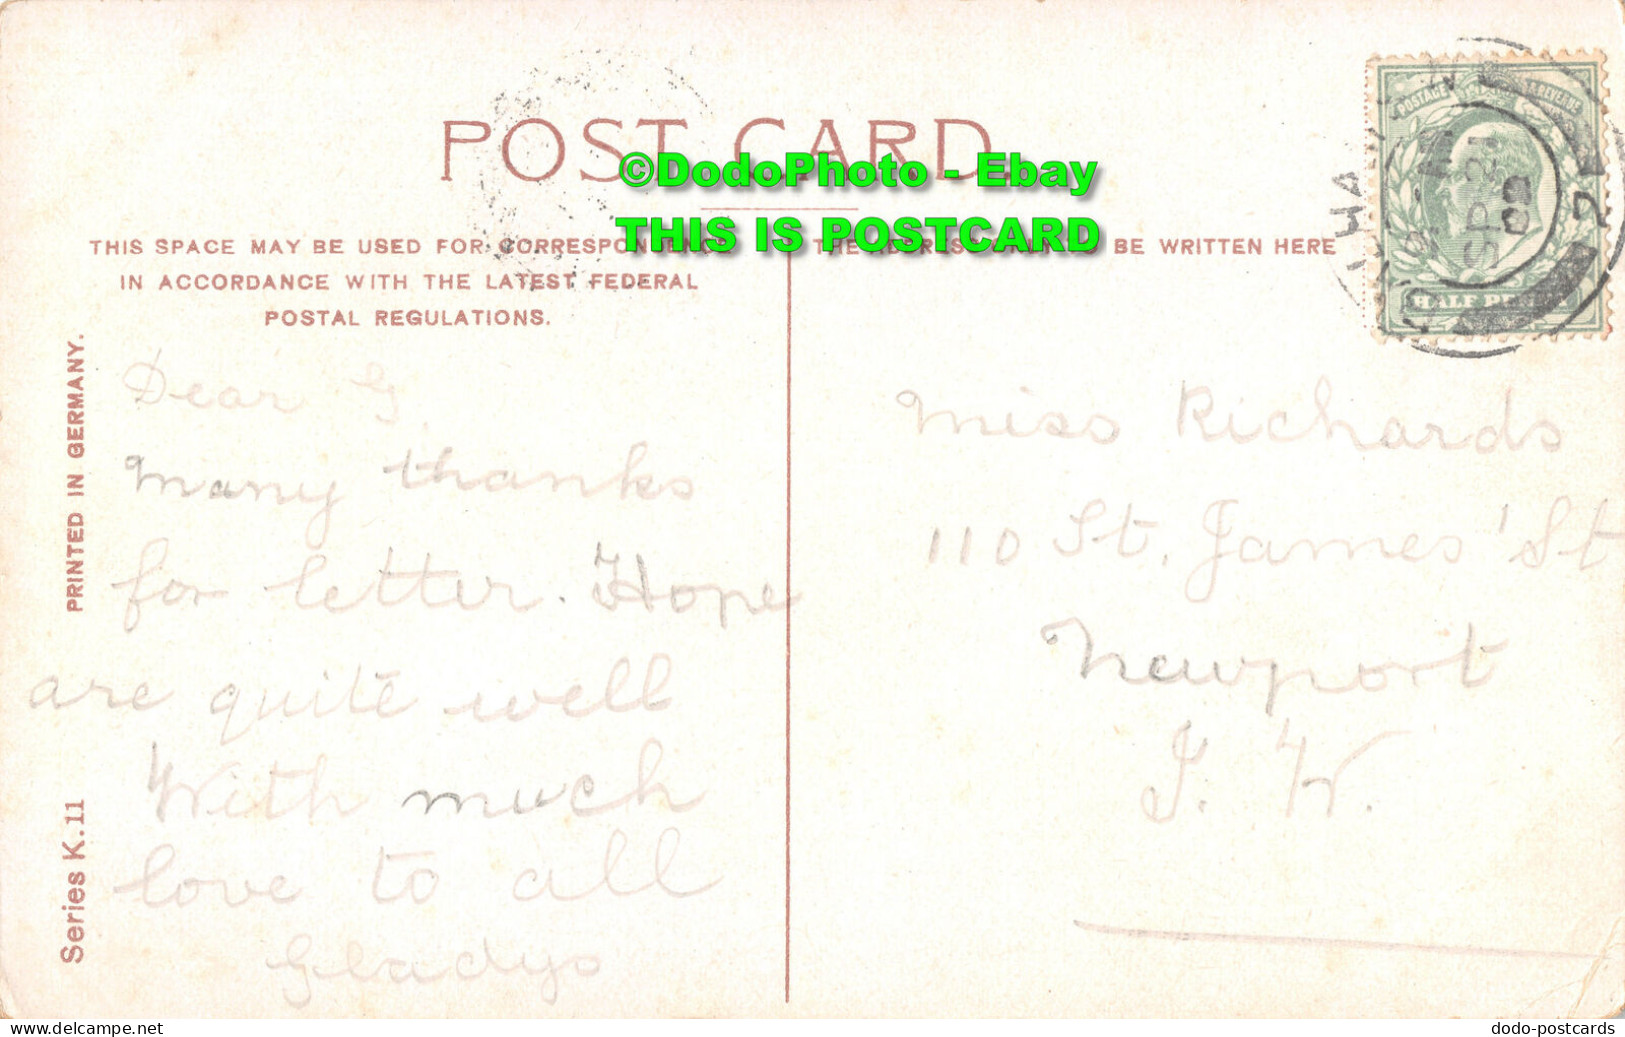 POST CARD.
©DodoPhoto - Ebay
THIS IS POSTCARD
THIS SPACE MAY BE USED FOR CORRESPONDENCE
IN ACCORDANCE WITH THE LATEST FEDERAL
POSTAL REGULATIONS.
THE ADDRESS ONLY TO BE WRITTEN HERE
PRINTED IN GERMANY.
Series K.11
Dear G
Many thanks
for letter. Hope
are quite well
With much
love to all
Gladys
POSTAGE REVENUE
HALF PENNY
SP 21
Miss Richards
110 St. James' St
Newport
I. W.
delcampe.net
dodo-postcards